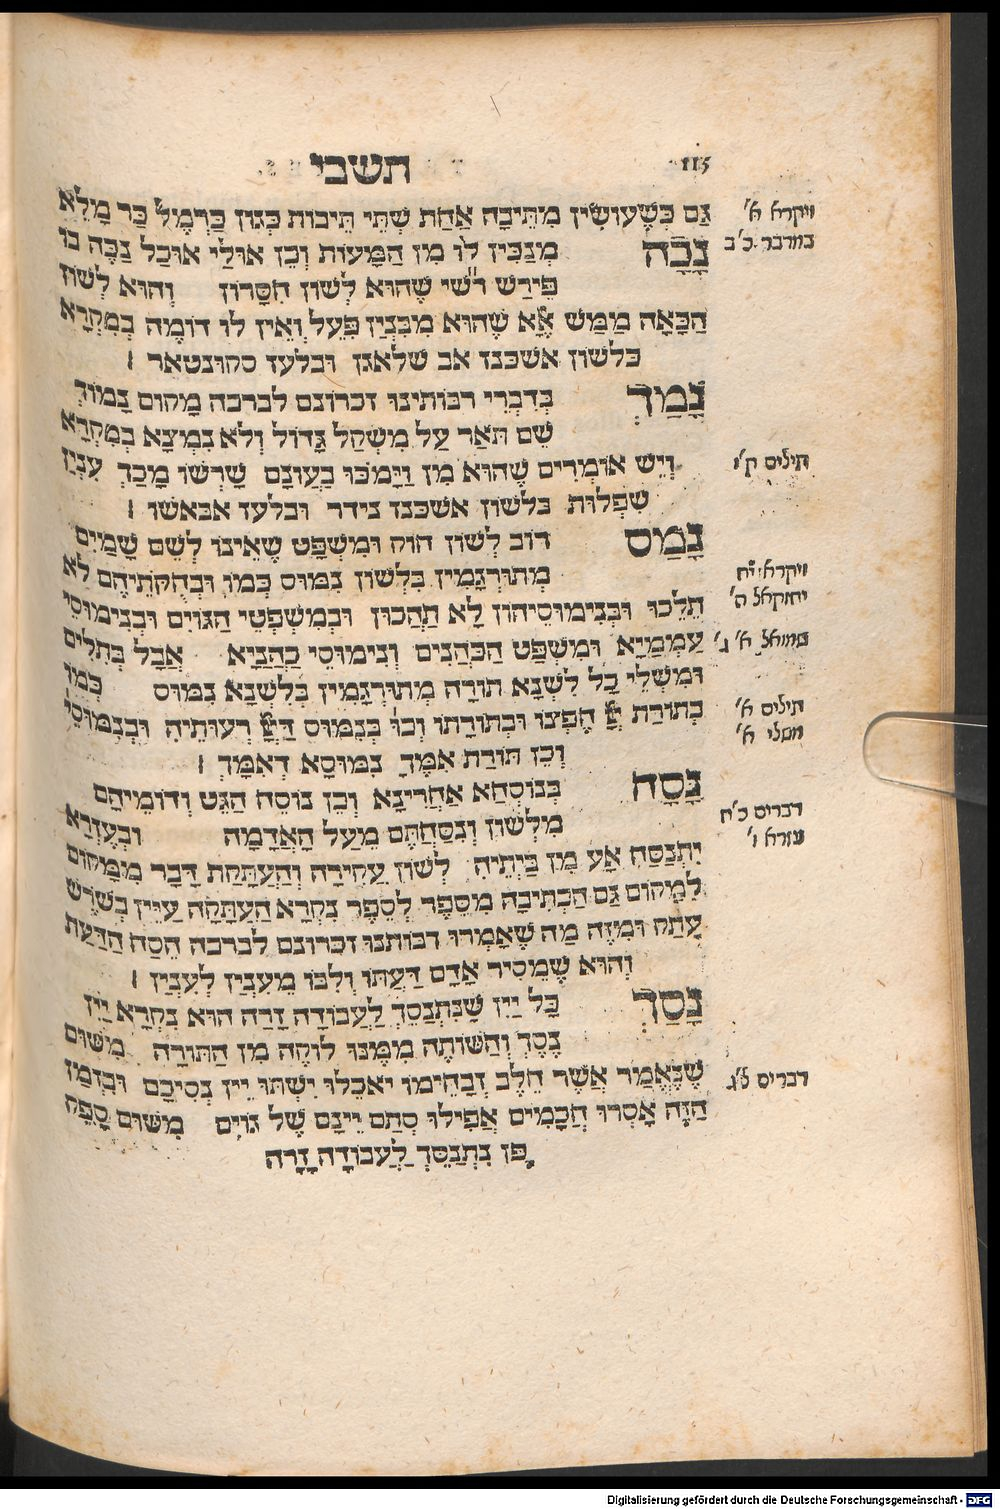 תשבי
115
גַּם כְּשֶׁעוֹשִׂין מִתֵּיבָה אַחַת שְׁתֵּי תֵּיבוֹת כְּגוֹן כַּרְמֶל כַּר מָלֵא
ויקרא א'
נָכָה מְנַכִּין לוֹ מִן הַמָּעוֹת וְכֵן אוּלַי אוּכַל נַכֶּה בּוֹ
במדבר כ'ב
פֵּירַשׁ רַ"שִׁי שֶׁהוּא לְשׁוֹן חִסָּרוֹן וְהוּא לְשׁוֹן
הַכָּאָה מַמָּשׁ אֶלָּא שֶׁהוּא מִבִּנְיַן פִּעֵל וְאֵין לוֹ דוֹמֶה בְּמִקְרָא
בלשון אשכנז אב שלאגן ובלעז סקונטאר :
נָמַךְ בְּדִבְרֵי רַבּוֹתֵינוּ זכרונם לברכה מָקוֹם נָמוֹךְ
שֵׁם תּוֹאַר עַל מִשְׁקַל גָּדוֹל וְלֹא נִמְצָא בְּמִקְרָא
וְיֵשׁ אוֹמְרִים שֶׁהוּא מִן וַיָּמֹכּוּ בַּעֲוֹנָם שָׁרְשׁוֹ מָכַךְ עִנְיַן
תילים ק'ו
שִׁפְלוּת בלשון אשכנז נידר ובלעז אבאשו :
נָמַס רוֹב לְשׁוֹן חוֹק וּמִשְׁפָּט שֶׁאֵינוֹ לְשֵׁם שָׁמַיִם
מְתוּרְגָּמִין בִּלְשׁוֹן נִמּוּס כְּמוֹ וּבְחֻקֹּתֵיהֶם לֹא
ויקרא י"ח
תֵלֵכוּ וּבְנִימוּסֵיהוֹן לָא תְהָכוּן וּבְמִשְׁפְּטֵי הַגּוֹיִם וּבְנִימוּסֵי
יחזקאל ה'
עַמְמַיָּא וּמִשְׁפַּט הַכֹּהֲנִים וְנִימוּסֵי כַהֲנַיָּא אֲבָל בְּתִלִּים
שמואל א' ב'
וּמִשְׁלֵי כָל לִשְׁנָא תוֹרָה מְתוּרְגָּמִין בְּלִשְׁנָא נִמּוּס כְּמוֹ
בְּתוֹרַת יְיָ חֶפְצוֹ וּבְתוֹרָתוֹ וְכוּ' בְּנִמּוּס דַּיְיָ רְעוּתֵיהּ וּבְנִמּוּסֵי
תילים א'
וְכֵן תּוֹרַת אִמֶּךָ נִמּוּסָא דְאִמָּךְ :
משלי א'
נָסַח בְּנוּסְחָא אַחֲרִינָא וְכֵן נוּסַח הַגֵּט וְדוֹמֵיהָם
מִלְּשׁוֹן וְנִסַּחְתֶּם מֵעַל הָאֲדָמָה וּבְעֶזְרָא
דברים כ'ח
יִתְנַסַּח אָע מִן בַּיְתֵיהּ לְשׁוֹן עֲקִירָה וְהַעְתָּקַת דָּבָר מִמָּקוֹם
עזרא ו'
לְמָקוֹם גַּם הַכְּתִיבָה מִסֵּפֶר לְסֵפֶר נִקְרָא הַעְתָּקָה עַיֵּין בְּשֹׁרֶשׁ
עָתַק וּמִזֶּה מַה שֶּׁאָמְרוּ רבותנו זכרונם לברכה הֶסַּח הַדַּעַת
וְהוּא שֶׁמֵּסִיר אָדָם דַּעְתּוֹ וְלִבּוֹ מֵעִנְיָן לְעִנְיָן :
נָסַךְ כָּל יַיִן שֶׁנִּתְנַסֵּךְ לַעֲבוֹדָה זָרָה הוּא נִקְרָא יַיִן
נֶסֶךְ וְהַשּׁוֹתֶה מִמֶּנּוּ לוֹקֶה מִן הַתּוֹרָה מִשּׁוּם
שֶׁנֶּאֱמַר אֲשֶׁר חֵלֶב זְבָחֵימוֹ יֹאכֵלוּ יִשְׁתּוּ יֵין נְסִיכָם וּבַזְּמַן
דברים ל'ב
הַזֶּה אָסְרוּ חֲכָמִים אֲפִילוּ סְתָם יֵינָם שֶׁל גּוֹיִם מִשּׁוּם סָפֵק
פֶּן נִתְנַסֵּךְ לַעֲבוֹדָה זָרָה
Digitalisierung gefördert durch die Deutsche Forschungsgemeinschaft - DFG